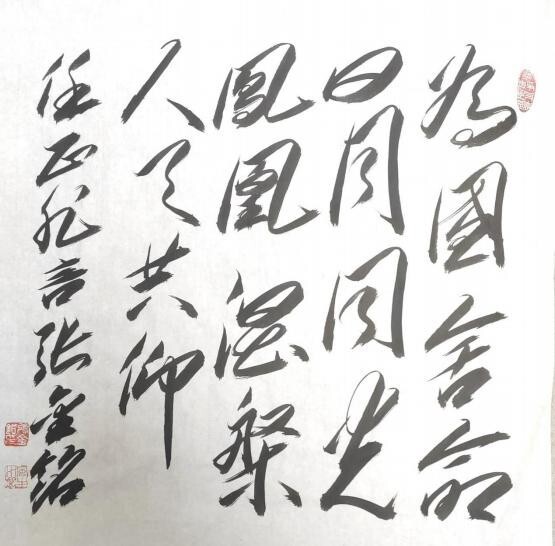 為國舍命
日月同光
鳳凰涅槃
人天共仰
任正非言張金銘